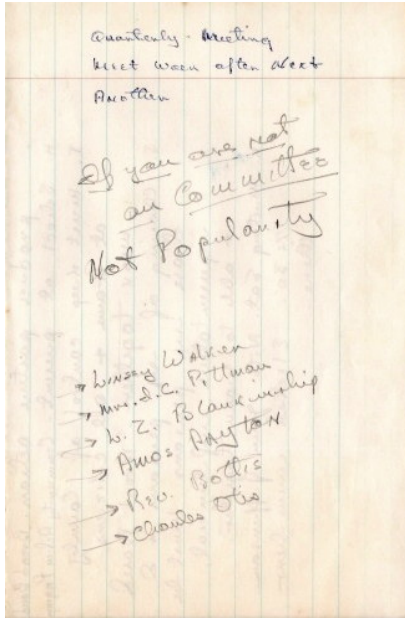 Quarterly - Meeting
Meet Week after Next
Another
If you are not
on Committee
Not Popularity
→ Linsey Walker
→ Mrs. J. C. Pittman
→ L. Z. Blankinship
→ Amos Payton
→ Rev. Bottis
→ Charles Otis